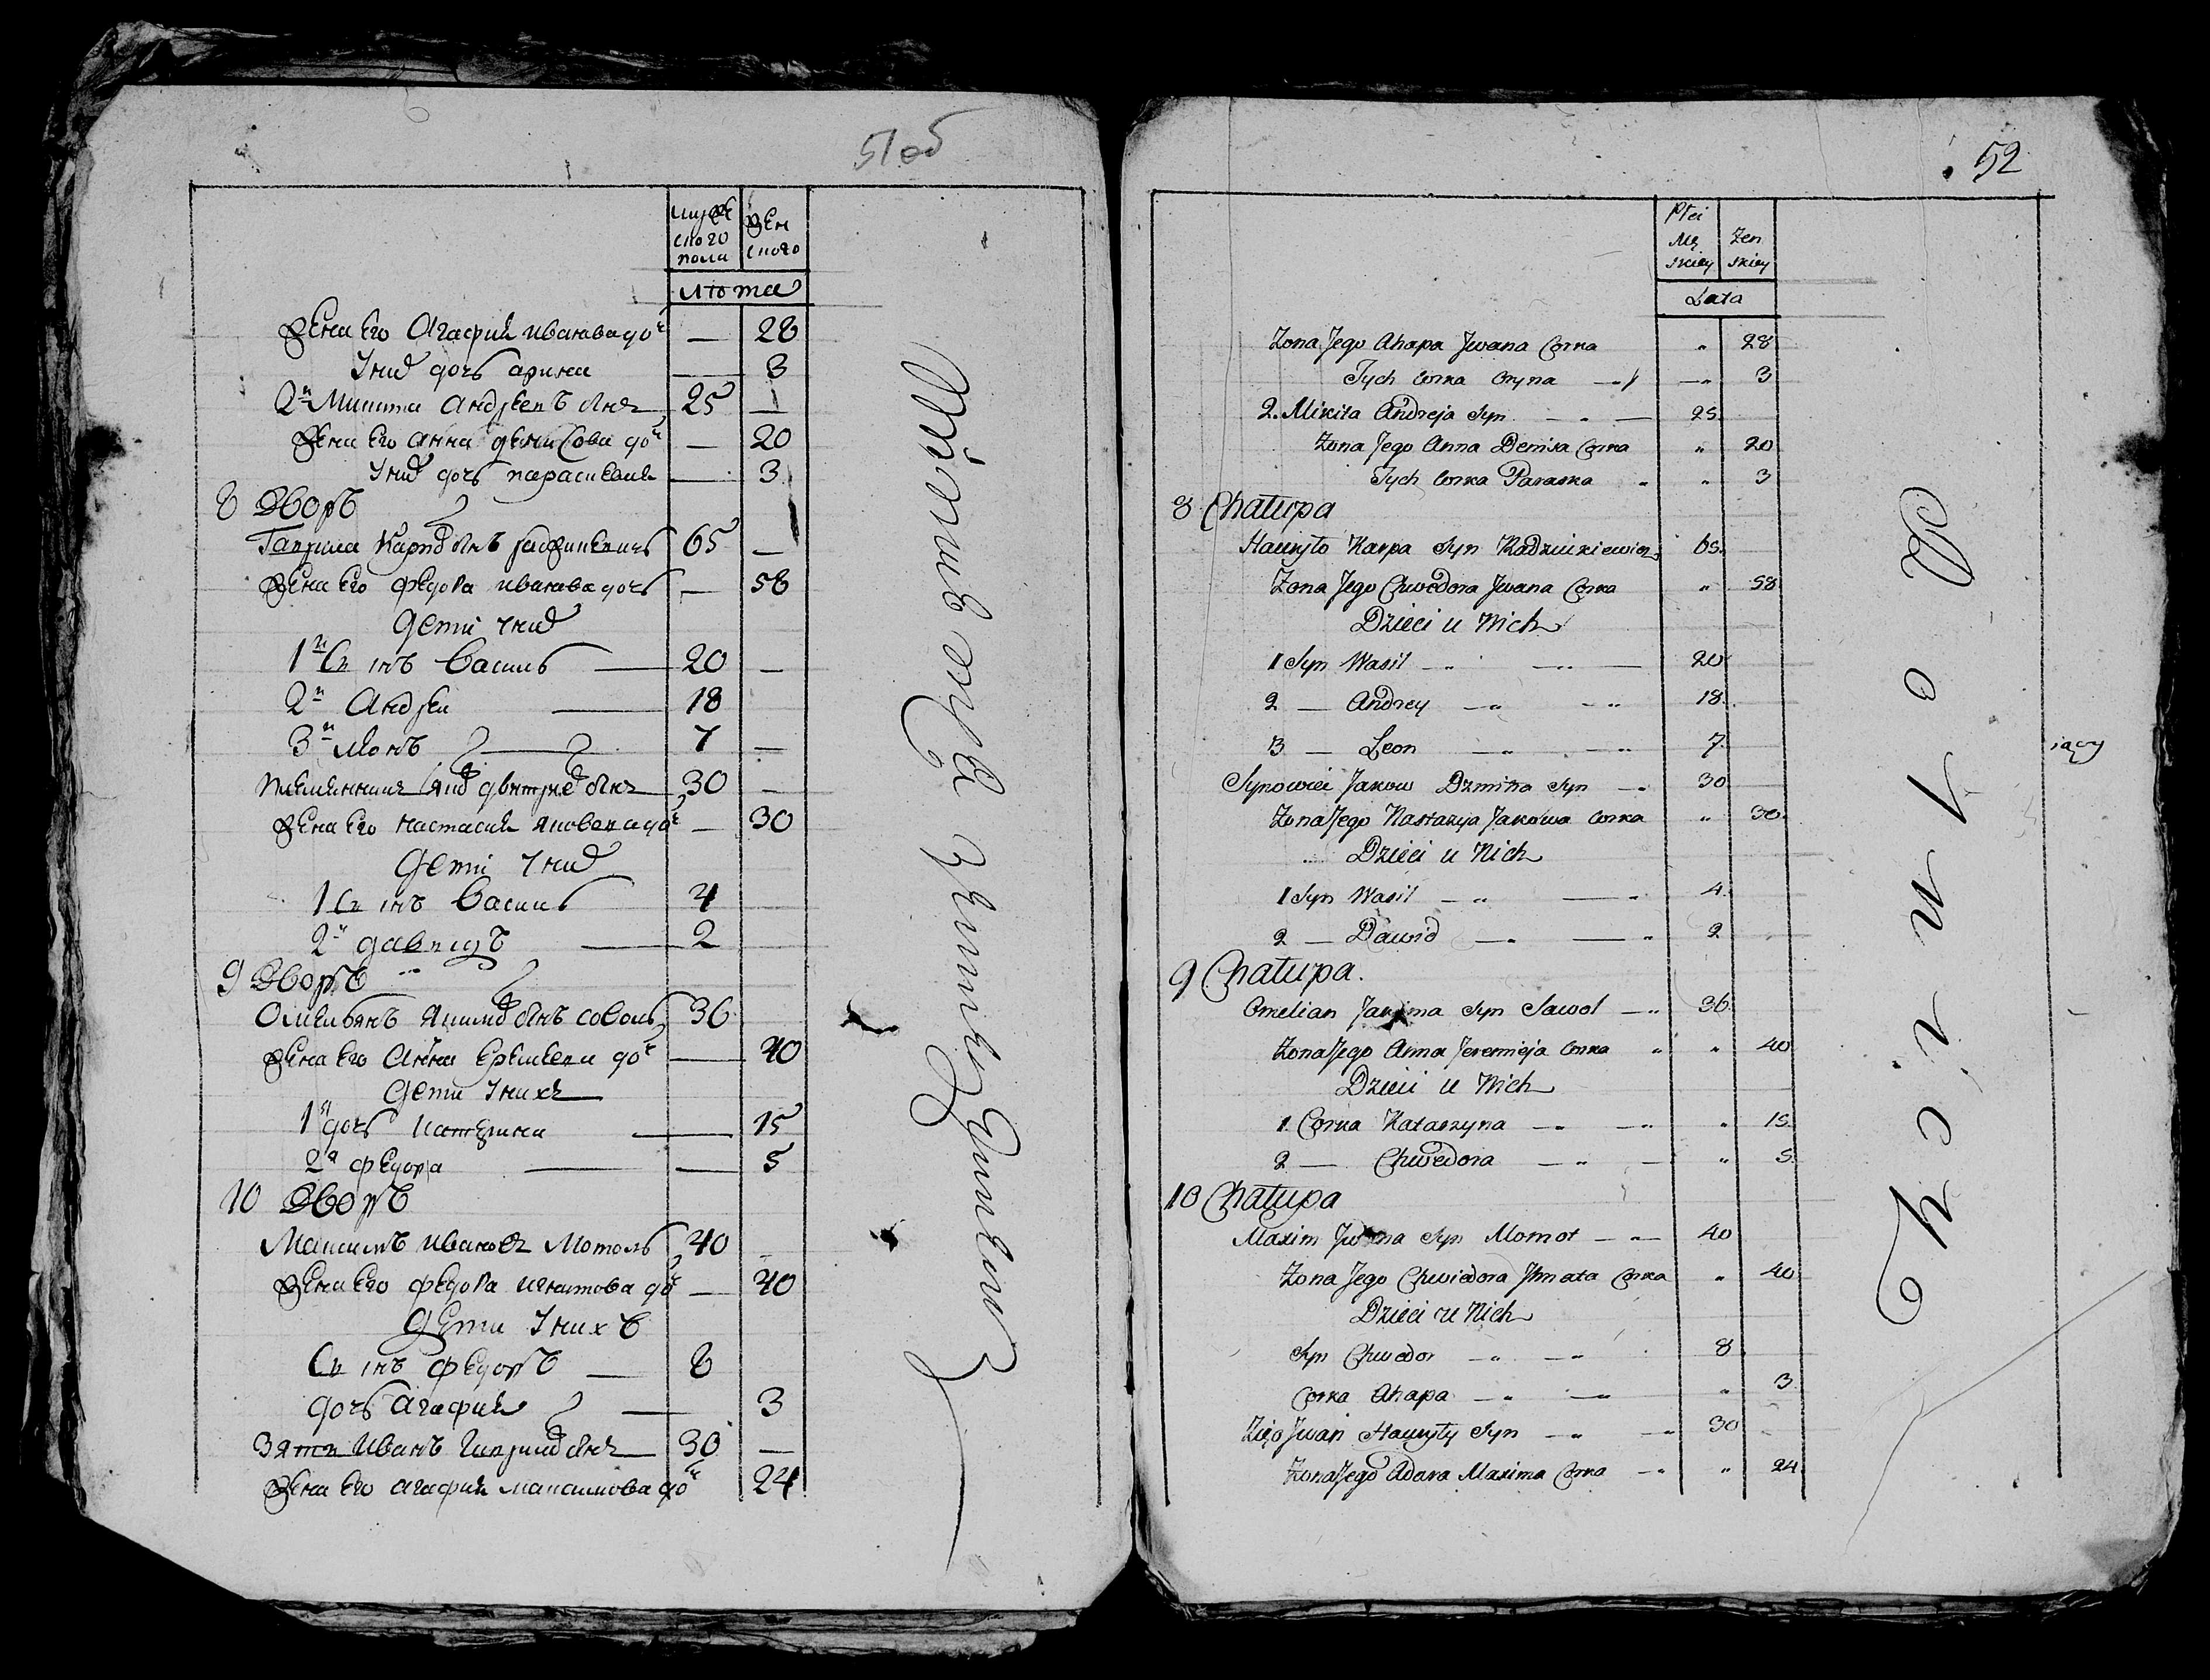 51 об
мужс
кого
пола
жен
ского
лѣта
жена его Агафия иванава доч — 28
Унихъ дочь арина — 3
2й Микита Андреевъ снъ 25 —
жена его анна денисова доч — 20
Унихъ дочь параскевия — 3
8 Дворъ
Гаврила Карповъ снъ 65 —
жена его федора иванава дочь — 58
дети Унихъ
1й Синъ Василь — 20 —
2й Андреи — 18
3й Леонъ — 7 —
30 —
жена его настасия яковлева доч — 30
дети Унихъ
1 Синъ Василь 4
2й давидъ — 2
9 Дворъ
Омельянъ Якимовъ снъ соволь 36
жена его Анна Еремеева доч — 40
дети Унихъ
1я дочь катерина — 15
2я федора — — 5
10 Дворъ
Максимъ ивановъ Мотоль 40 —
жена его федора игнатова до — 40
дети Унихъ
Синъ федоръ — 8
дочь Агафия — 3
Зять Иванъ Гаврилов снъ 30 —
жена его агафия максимова доч 24
52
Płci
Mę
skiey
Żen
skiey
Lata
Zona Jego Ahapa Jwana Corka „ 28
Tych Corka Oryna — „ — „ 3
2. Mikita Andreja Syn — „ — 25.
Zona Jego Anna Denisa Corka „ 20
Tych Corka Paraska „ „ 3
8 Chałupa
Hawryło Karpa Syn Radziukiewicz 65.
Zona Jego Chwedora Jwana Corka „ 58
Dzieci u Nich
1 Syn Wasil — „ — „ — 20
2 — Andrey — „ — „ 18.
3 — Leon — „ — „ 7.
Synowiec Jakow Dzmitra Syn — „ 30
Zona Jego Nastazya Jakowa Corka „ 30.
Dzieci u Nich
1 Syn Wasil — „ — „ 4.
2 — Dawid — „ — „ 2
9 Chałupa.
Omelian Jakima Syn Sawol — „ 36.
Zona Jego Anna Jeremieja Corka „ „ 40
Dzieci u Nich
1. Corka Katarzyna — „ — „ „ 15.
2 — Chwedora — „ — „ 5.
10 Chałupa
Maxim Jwana Syn Momot — „ — 40
Zona Jego Chwiedora Jhnata Corka „ 40
Dzieci u Nich
Syn Chwedor — „ — „ 8
Corka Ahapa — „ — „ „ 3
Zięć Jwan Hawryły Syn — „ — „ 30
Zona Jego Adara Maxima Corka — „ „ 24
Rolnicy
iący